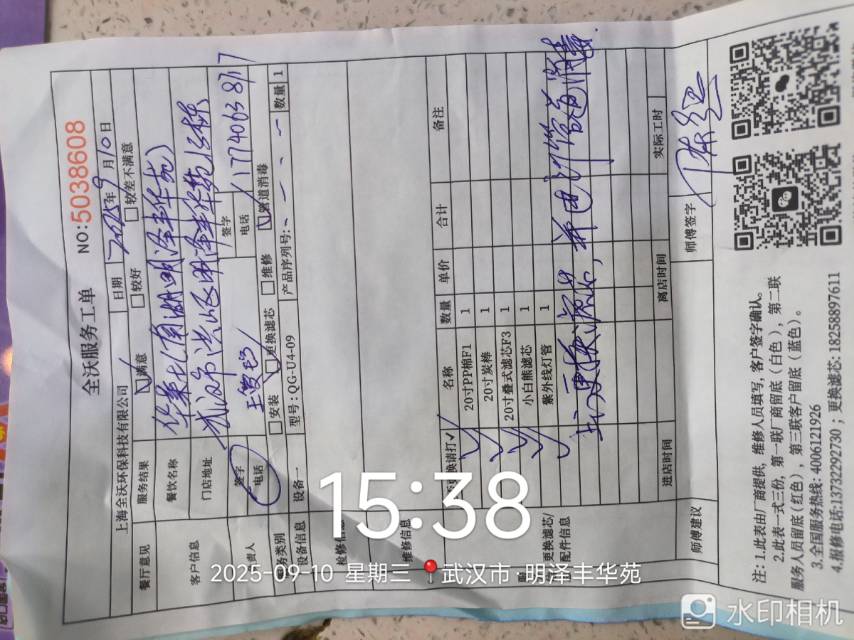 全沃服务工单
NO:5038608
上海全沃环保科技有限公司 日期 2025年9月10日
餐厅意见 服务结果 满意 较好 较差不满意
客户信息 餐饮名称
门店地址
负责人 签字 签字
电话 电话 17740638117
服务分类别 安装 更换滤芯 维修 管道消毒
设备信息 设备一 型号:QG-U4-09 产品序列号: 数量 1
检修信息
维修信息
更换滤芯/配件信息 更换请打✓ 名称 数量 单价 合计 备注
✓ 20寸PP棉F1 1
✓ 20寸炭棒 1
✓ 20寸叠式滤芯F3 1
✓ 小白熊滤芯 1
✓ 紫外线灯管 1
进店时间 离店时间 实际工时
师傅建议 师傅签字
注:1.此表由厂商提供,维修人员填写,客户签字确认。
2.此表一式三份,第一联厂商留底(白色),第二联
服务人员留底(红色),第三联客户留底(蓝色)。
3.全国服务热线:4006121926
4.报修电话:13732292730;更换滤芯:18258897611
15:38
2025-09-10 星期三 武汉市·明泽丰华苑
水印相机